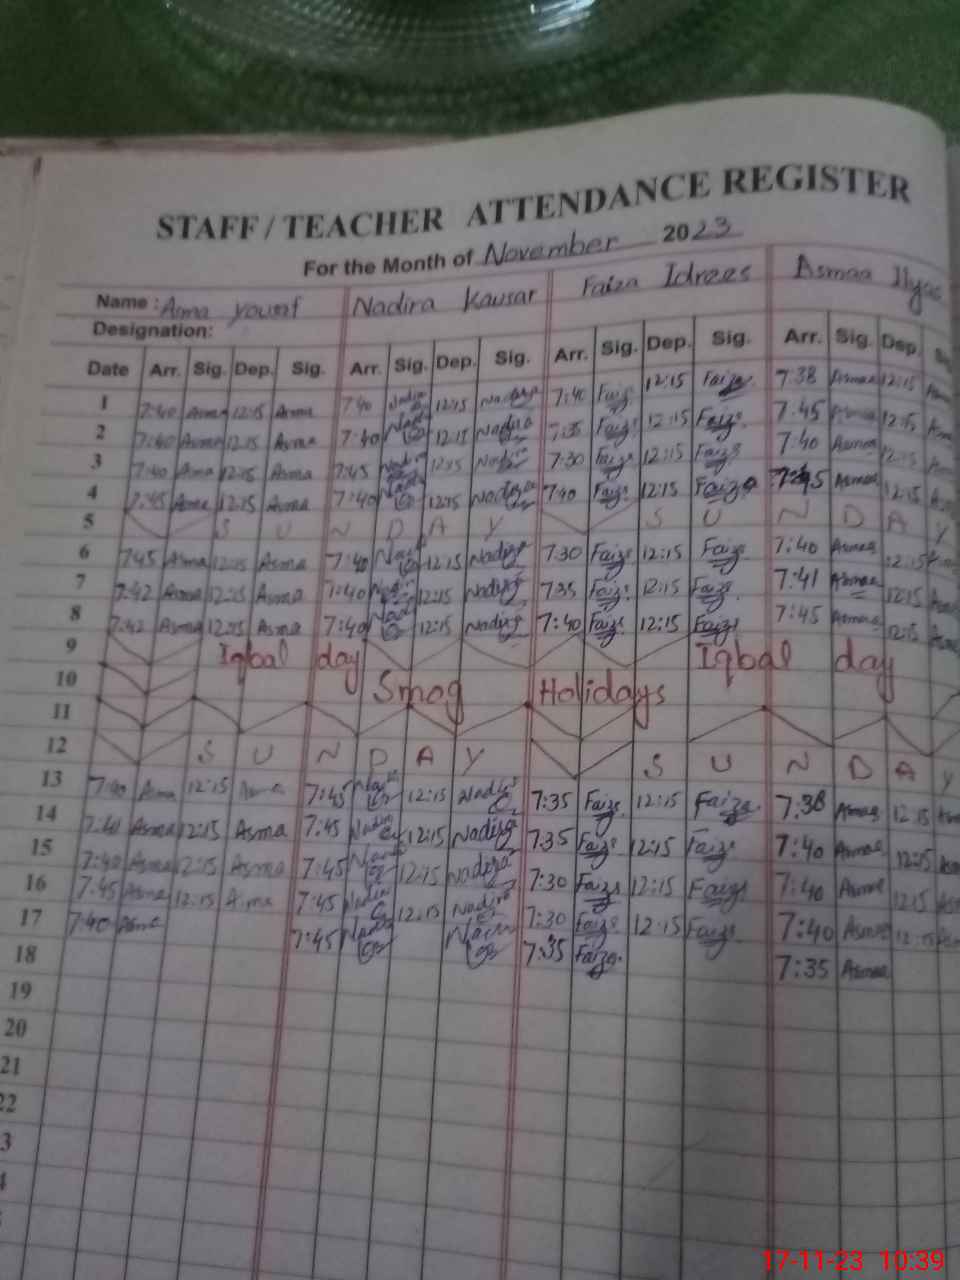 STAFF / TEACHER ATTENDANCE REGISTER
For the Month of November 2023
Name : Asma yousaf Nadira Kausar Faiza Idrees Asmaa Ilyas
Designation:
Date Arr. Sig. Dep. Sig. Arr. Sig. Dep. Sig. Arr. Sig. Dep. Sig. Arr. Sig. Dep.
1 7:40 Asma 12:15 Asma 7:40 Nadira 12:15 Nadira 7:40 Faiza 12:15 Faiza 7:38 Asmaa 12:15
2 7:40 Asma 12:15 Asma 7:40 12:15 Nadira 7:35 Faiza 12:15 Faiza 7:45 Asmaa 12:15
3 7:40 Asma 12:15 Asma 7:45 Nadira 12:15 Nadira 7:30 Faiza 12:15 Faiza 7:40 Asmaa 12:15
4 7:45 Asma 12:15 Asma 7:40 12:15 Nadira 7:40 Faiza 12:15 Faiza 7:45 Asmaa 12:15
5 S U N D A Y S U N D A Y
6 7:45 Asma 12:15 Asma 7:40 12:15 Nadira 7:30 Faiza 12:15 Faiza 7:40 Asmaa 12:15
7 7:42 Asma 12:15 Asma 7:40 12:15 Nadira 7:35 Faiza 12:15 Faiza 7:41 Asmaa 12:15
8 7:42 Asma 12:15 Asma 7:40 12:15 Nadira 7:40 Faiza 12:15 Faiza 7:45 Asmaa 12:15
9 Iqbal day Iqbal day
10 Smog Holidays
11
12 S U N D A Y S U N D A Y
13 7:40 Asma 12:15 Asma 7:45 12:15 Nadira 7:35 Faiza 12:15 Faiza 7:38 Asmaa 12:15
14 7:40 Asma 12:15 Asma 7:45 Nadira 12:15 Nadira 7:35 Faiza 12:15 Faiza 7:40 Asmaa 12:15
15 7:40 Asma 12:15 Asma 7:45 12:15 Nadira 7:30 Faiza 12:15 Faiza 7:40 Asmaa 12:15
16 7:45 Asma 12:15 Asma 7:45 Nadira 12:15 Nadira 7:30 Faiza 12:15 Faiza 7:40 Asmaa 12:15
17 7:40 Asma 7:45 7:35 Faiza 7:35 Asmaa
18
19
20
21
22
17-11-23 10:39